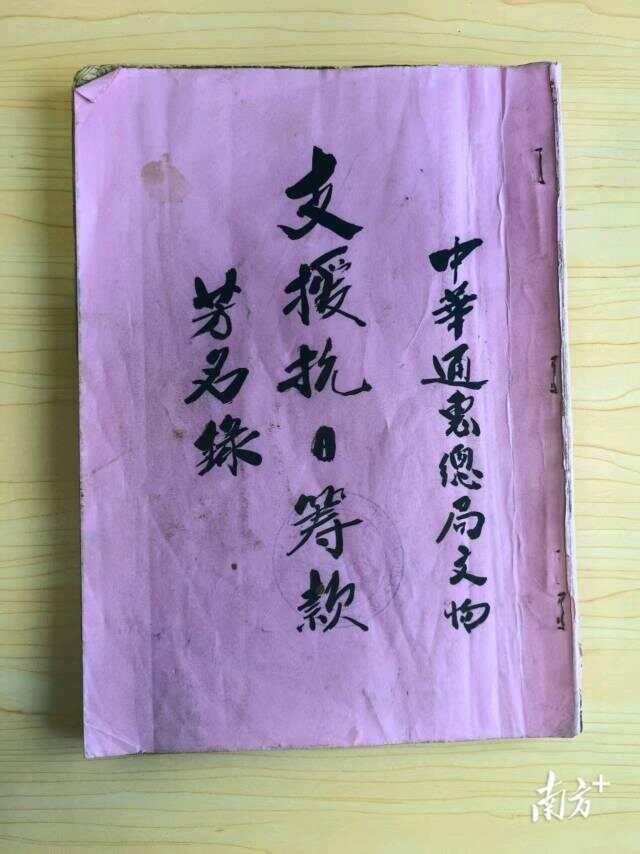 中華通惠總局文物
支援抗日籌款
芳名錄
南方+